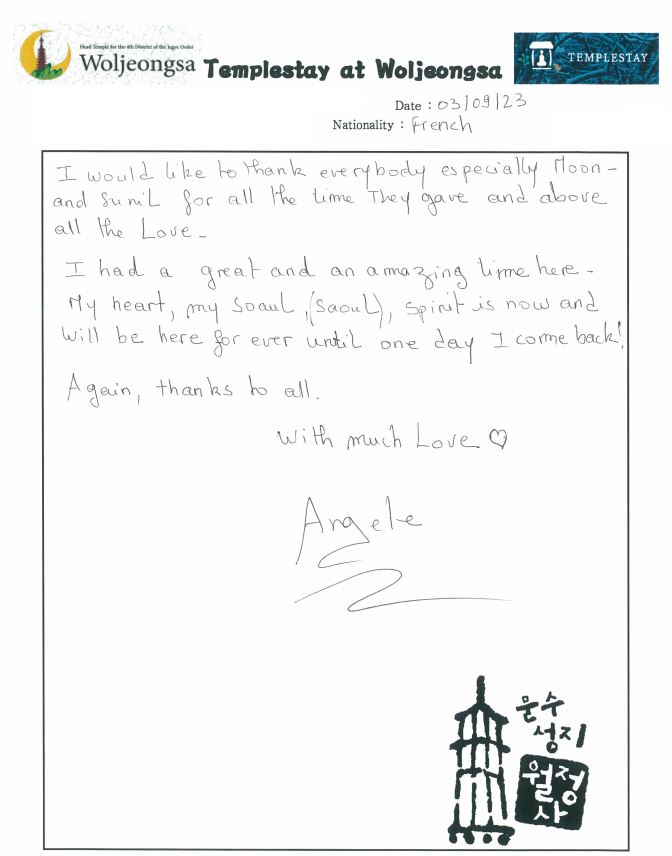 Head Temple for the 4th District of the Jogye Order
Woljeongsa
Templestay at Woljeongsa
TEMPLESTAY
Date : 03/09/23
Nationality : french
I would like to thank everybody especially Moon-
and Sunil for all the time They gave and above
all the Love -
I had a great and an amazing time here -
My heart, my soaul, (saoul), spirit is now and
will be here for ever until one day I come back!
Again, thanks to all.
With much Love ♡
Angele
문수
성지
월정
사